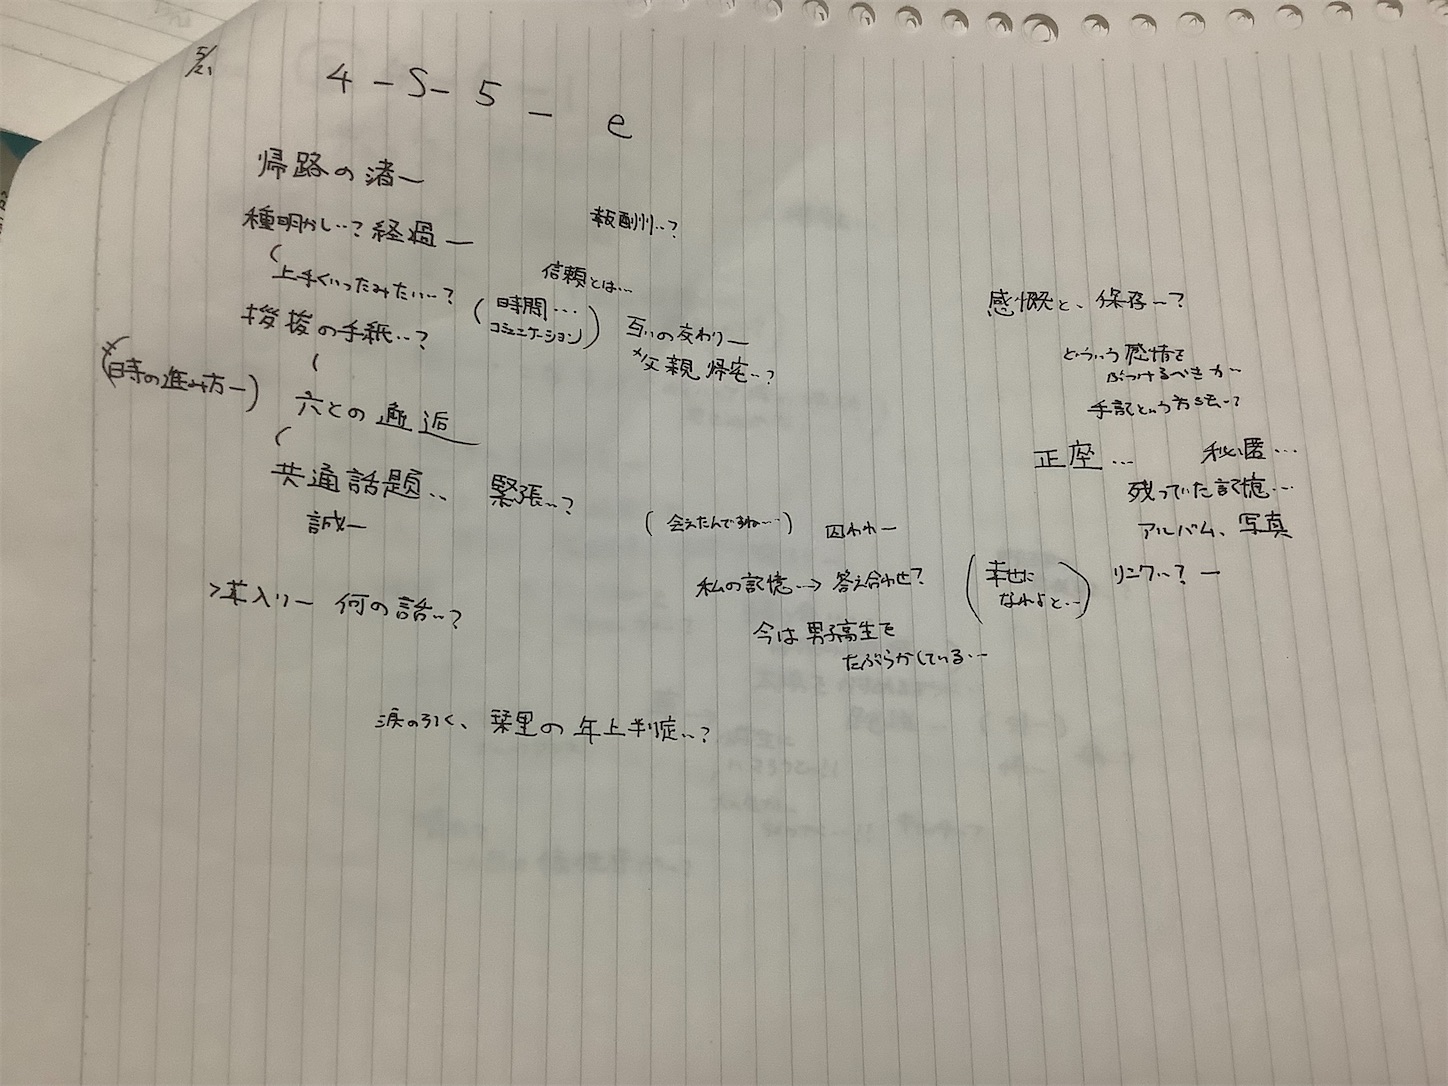 5/21
4-S-5_ e
帰路の渚ー
種明かし…?経過ー
報酬…?
上手くいったみたい…?
信頼とは…
(時間…
コミュニケーション)
挨拶の手紙…?
互いの交わりー
父親 帰宅…?
(時の進み方ー)
六との邂逅
共通話題… 緊張…?
誠ー
(会えたんですね…)
囚われー
感慨と、保存…?
どういう感情を
ぶつけるべきかー
手記という方法…?
正座… 秘匿…
残っていた記憶…
アルバム、写真
私の記憶…→答え合わせ?
(幸せに
なれよと…)
リンク…?ー
入りー 何の話…?
今は男子高生を
たぶらかしている…
涙の引く、栞里の年上判定…?